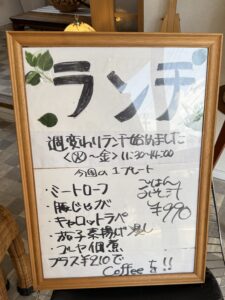 ランチ
週変わりランチ始めました
<火>〜金>11:30~14:00
今週の1プレート
・ミートローフ
・豚じゃが
・キャロットラペ
・茄子素揚げ浸し
・ゴーヤ佃煮
ごはん
みそ汁
¥990
プラス¥210で
Coffeeを!!